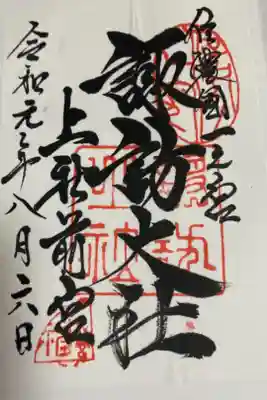 信濃國一之宮
諏訪大社
上社前宮
令和元年八月六日